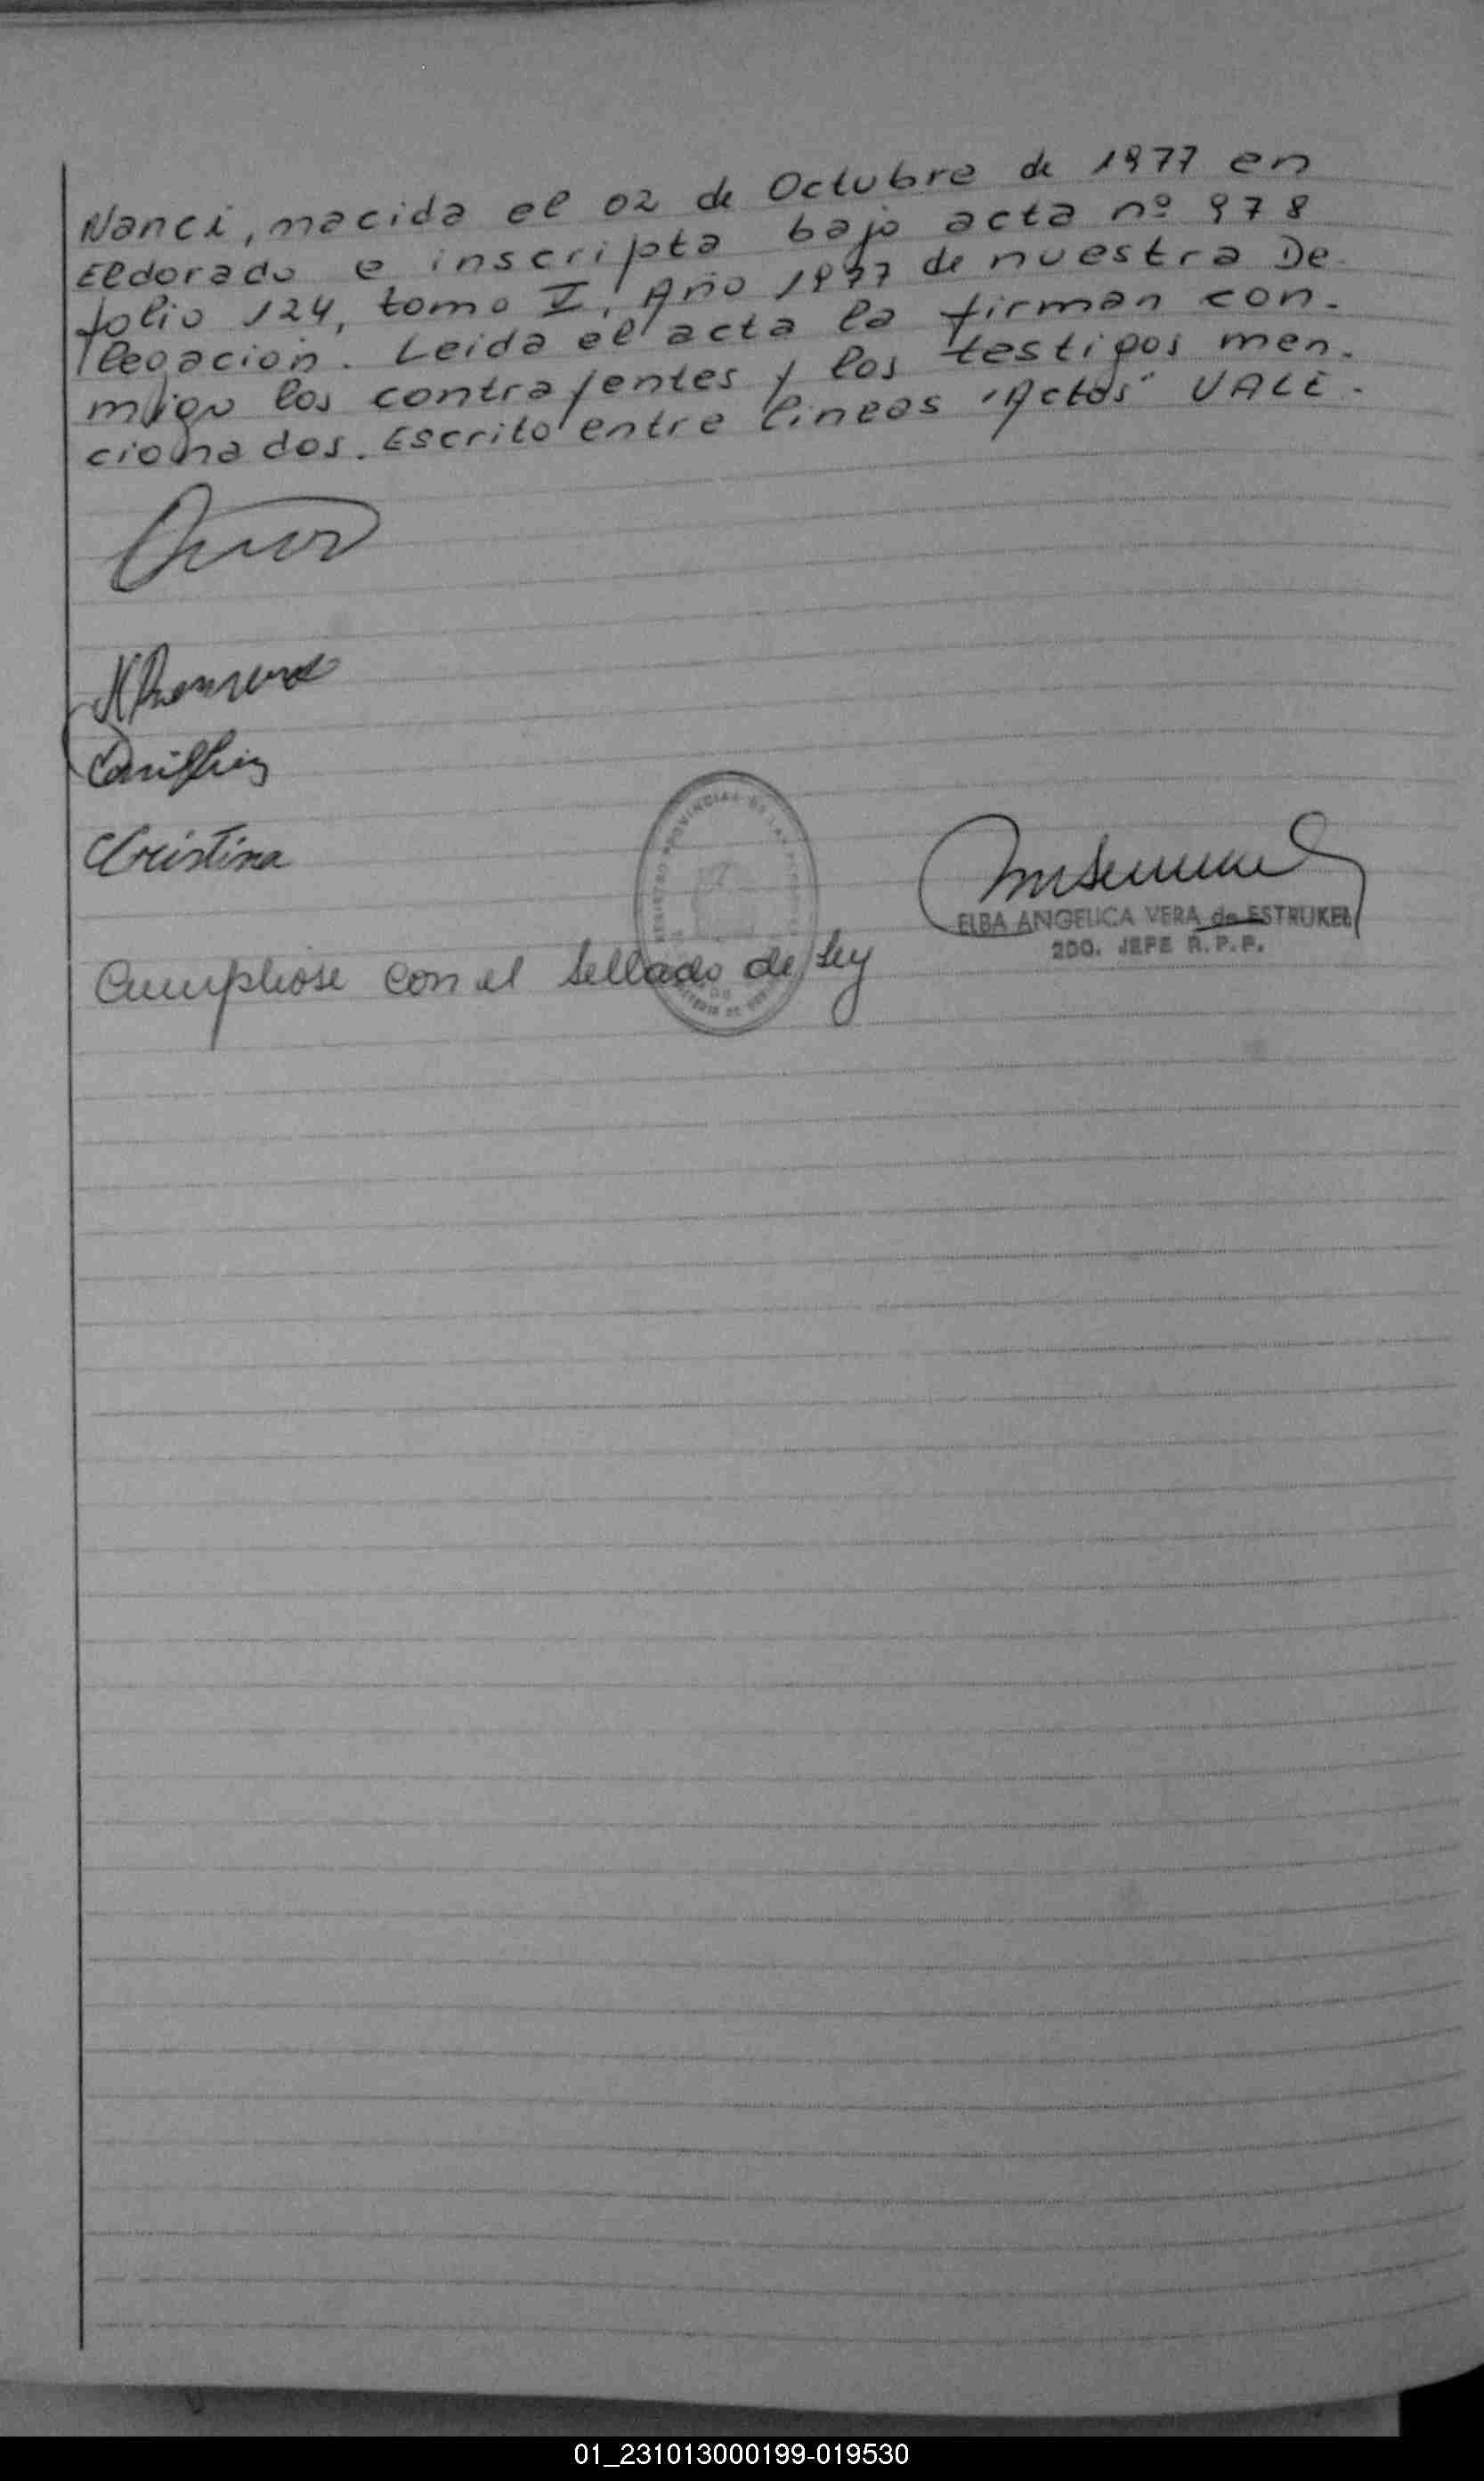 Nanci, nacida el 02 de Octubre de 1977 en
Eldorado e inscripta bajo acta nº 978
folio 124, tomo V, Año 1977 de nuestra De-
legacion. Leida el acta la firman con-
migo los contrayentes y los testigos men-
cionados. Escrito entre lineas "Actos" VALE.
Cristina
ELBA ANGELICA VERA de ESTRUKEL
2DO. JEFE R.P.P.
Cumpliose con el Sellado de Ley
01_231013000199-019530